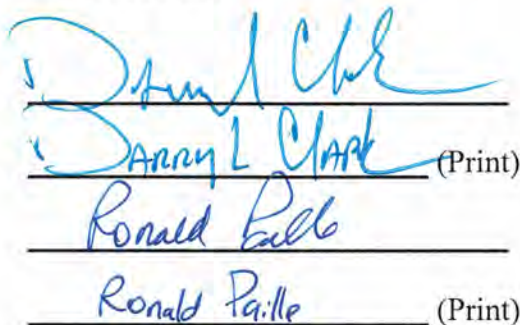 Darryl Clark
DARRYL L CLARK (Print)
Ronald Paille
Ronald Paille (Print)